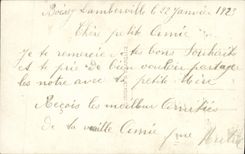 Boissy Lamberville le 22 Janvier 1923
Chère petite Amie
Je te remercie de tes bons Souhaits
et te prie de bien vouloir partager
les notre avec ta petite Mère
Reçois les meilleur Amitiés
de ta vieille Amie